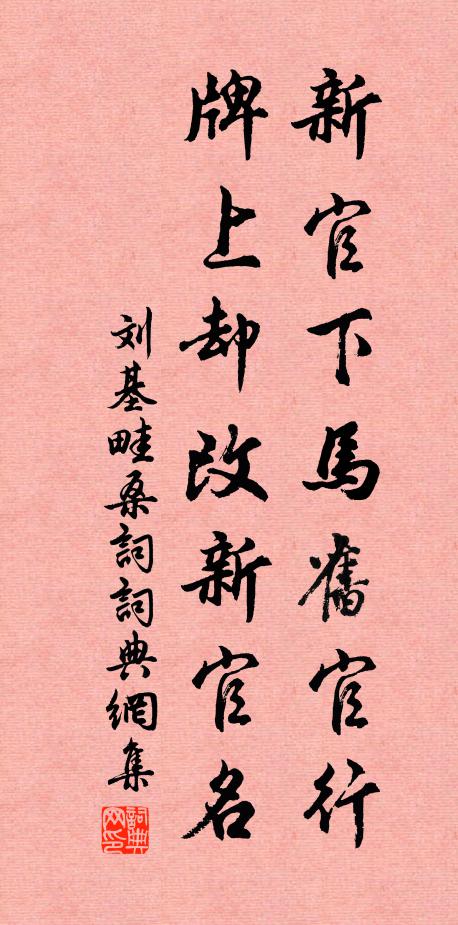 新官下馬舊官行
牌上却改新官名
刘基畦桑詞詞典網集
詞典网印